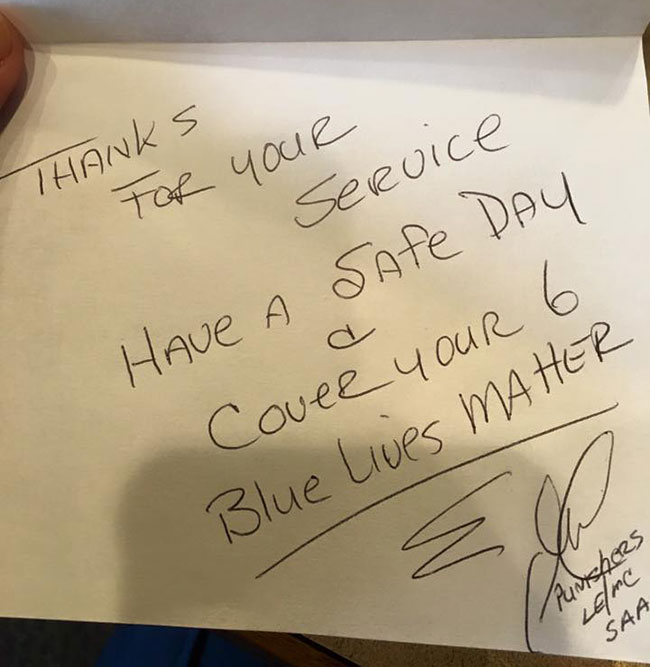 THANKS
FOR YOUR
SERVICE
HAVE A SAFE DAY
&
COVER YOUR 6
Blue Lives MATTER
PUNISHERS
LE/MC
SAA